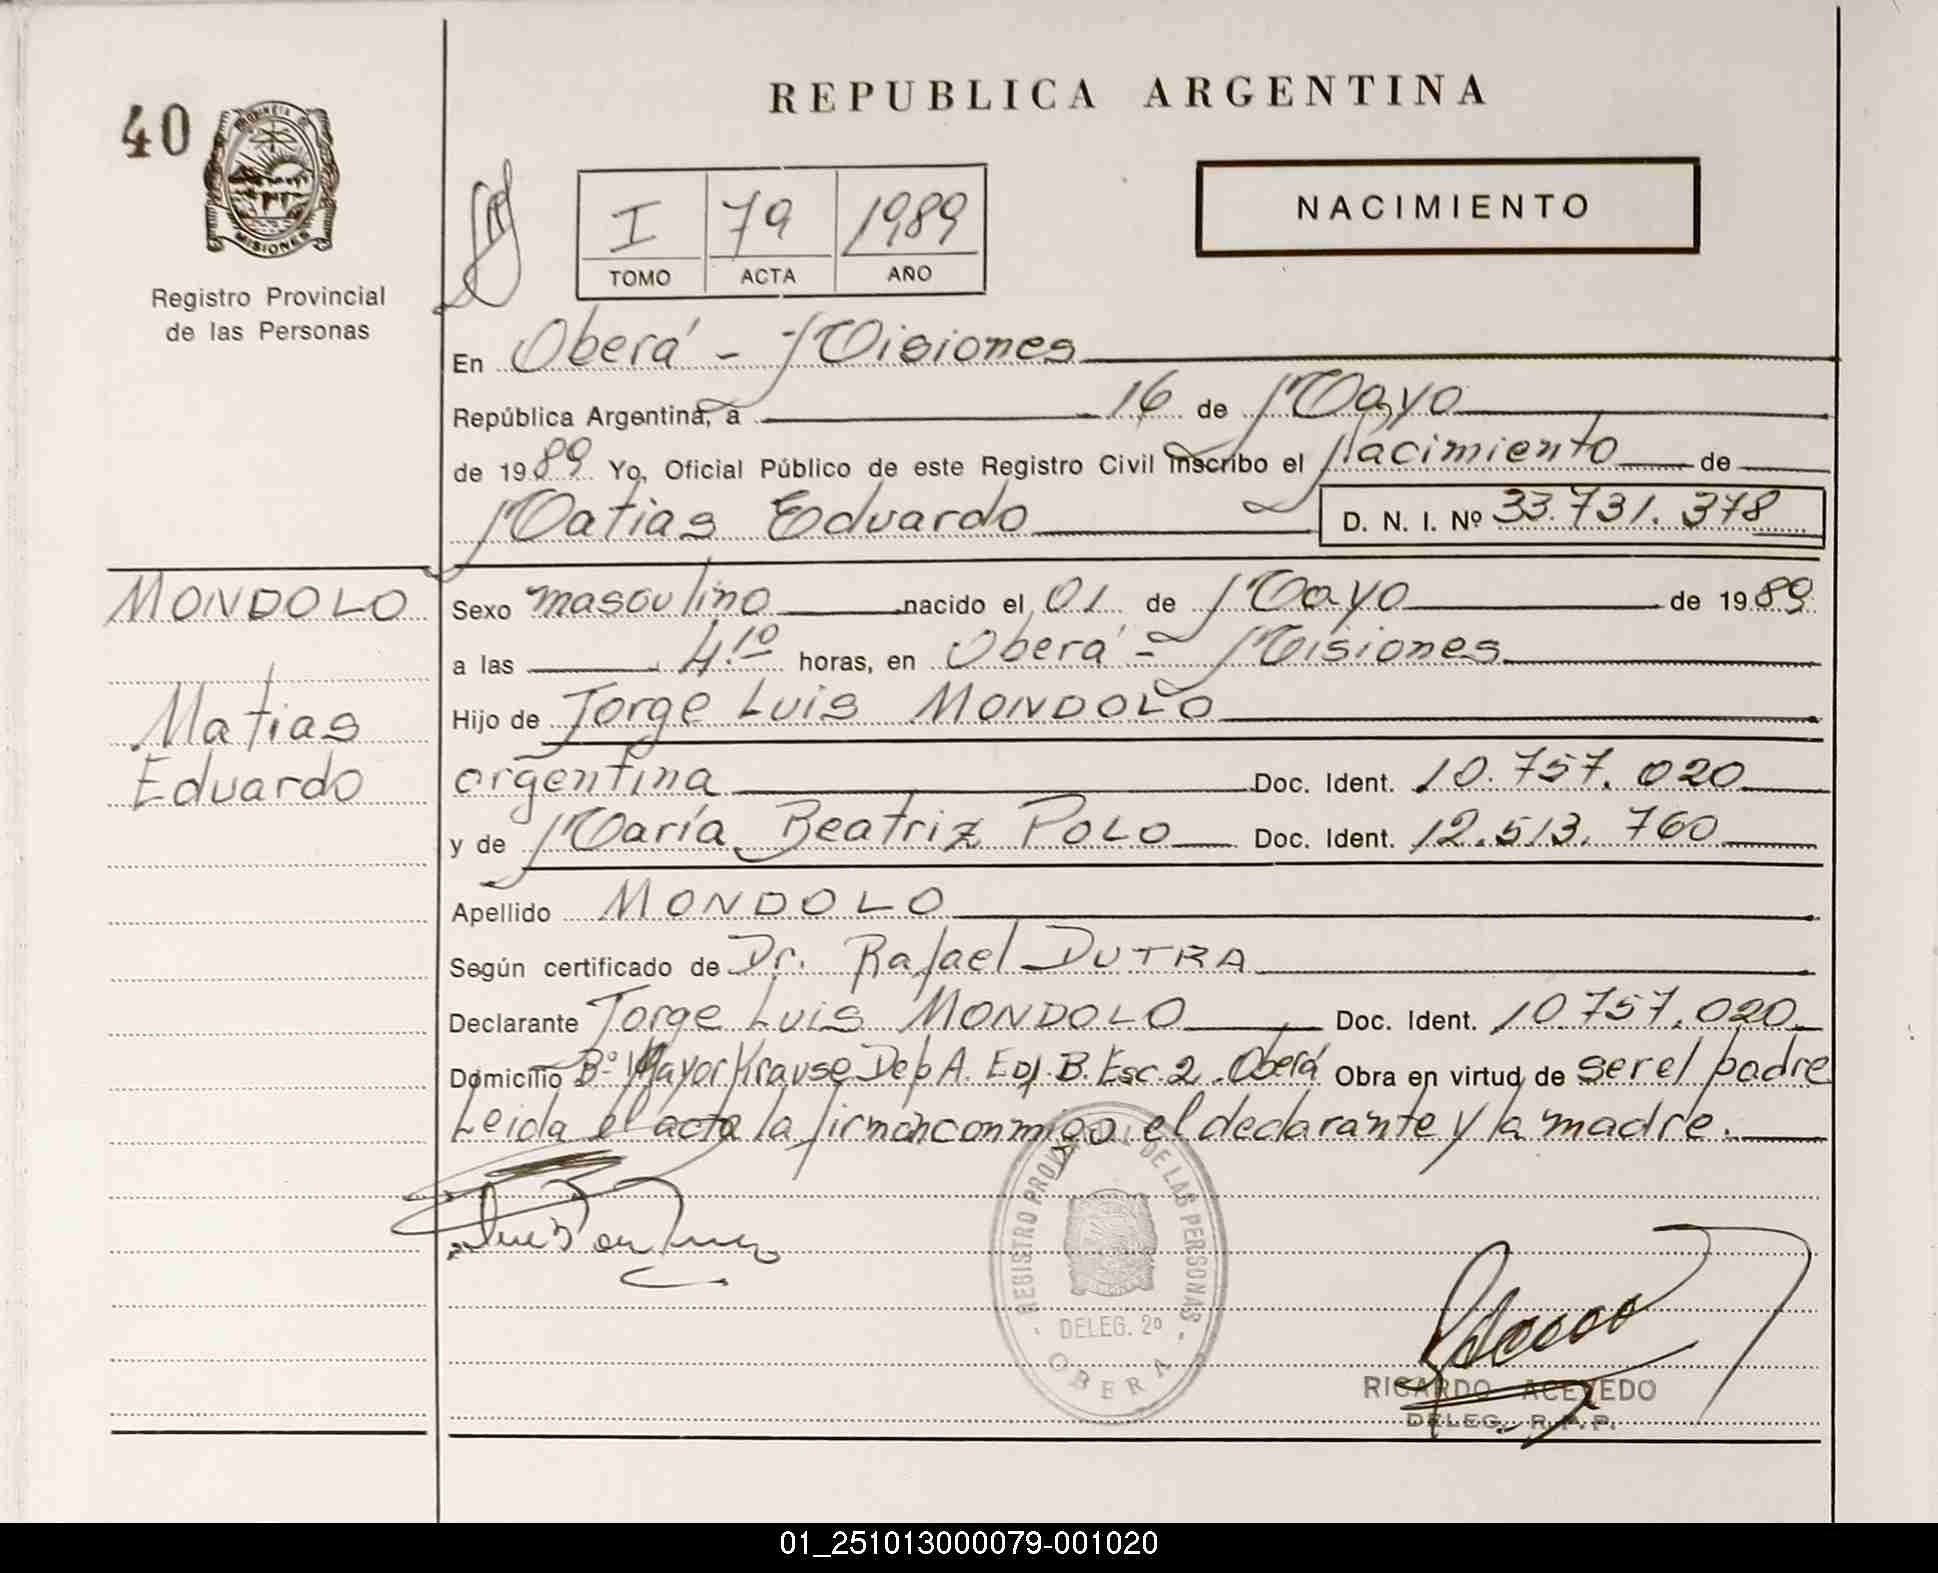 REPUBLICA ARGENTINA
40
PROVINCIA DE
MISIONES
Registro Provincial
de las Personas
I 79 1989
TOMO ACTA AÑO
NACIMIENTO
En Oberá - Misiones
República Argentina, a 16 de Mayo
de 1989 Yo, Oficial Público de este Registro Civil inscribo el Nacimiento de
Matias Eduardo D. N. I. Nº 33.731.378
MONDOLO
Matias
Eduardo
Sexo masculino nacido el 01 de Mayo de 1989
a las 4.10 horas, en Oberá - Misiones
Hijo de Jorge Luis MONDOLO
argentina Doc. Ident. 10.757.020
y de María Beatriz POLO Doc. Ident. 12.513.760
Apellido MONDOLO
Según certificado de Dr. Rafael DUTRA
Declarante Jorge Luis MONDOLO Doc. Ident. 10.757.020
Domicilio Bº Mayor Krause Dep A. Edf. B. Esc. 2. Oberá Obra en virtud de ser el padre
Leida el acta la firman conmigo el declarante y la madre.
REGISTRO PROVINCIAL DE LAS PERSONAS
DELEG. 2º
OBERA
RICARDO ACEVEDO
DELEG. R.P.P.
01_251013000079-001020